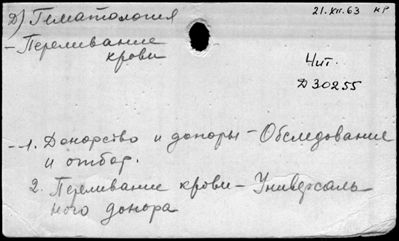 Д) Гематология
21.XII.63 НР
- Переливание
крови
Чит.
D 30255
- 1. Донорство и доноры - Обследование
и отбор.
2. Переливание крови - Универсаль
ного донора